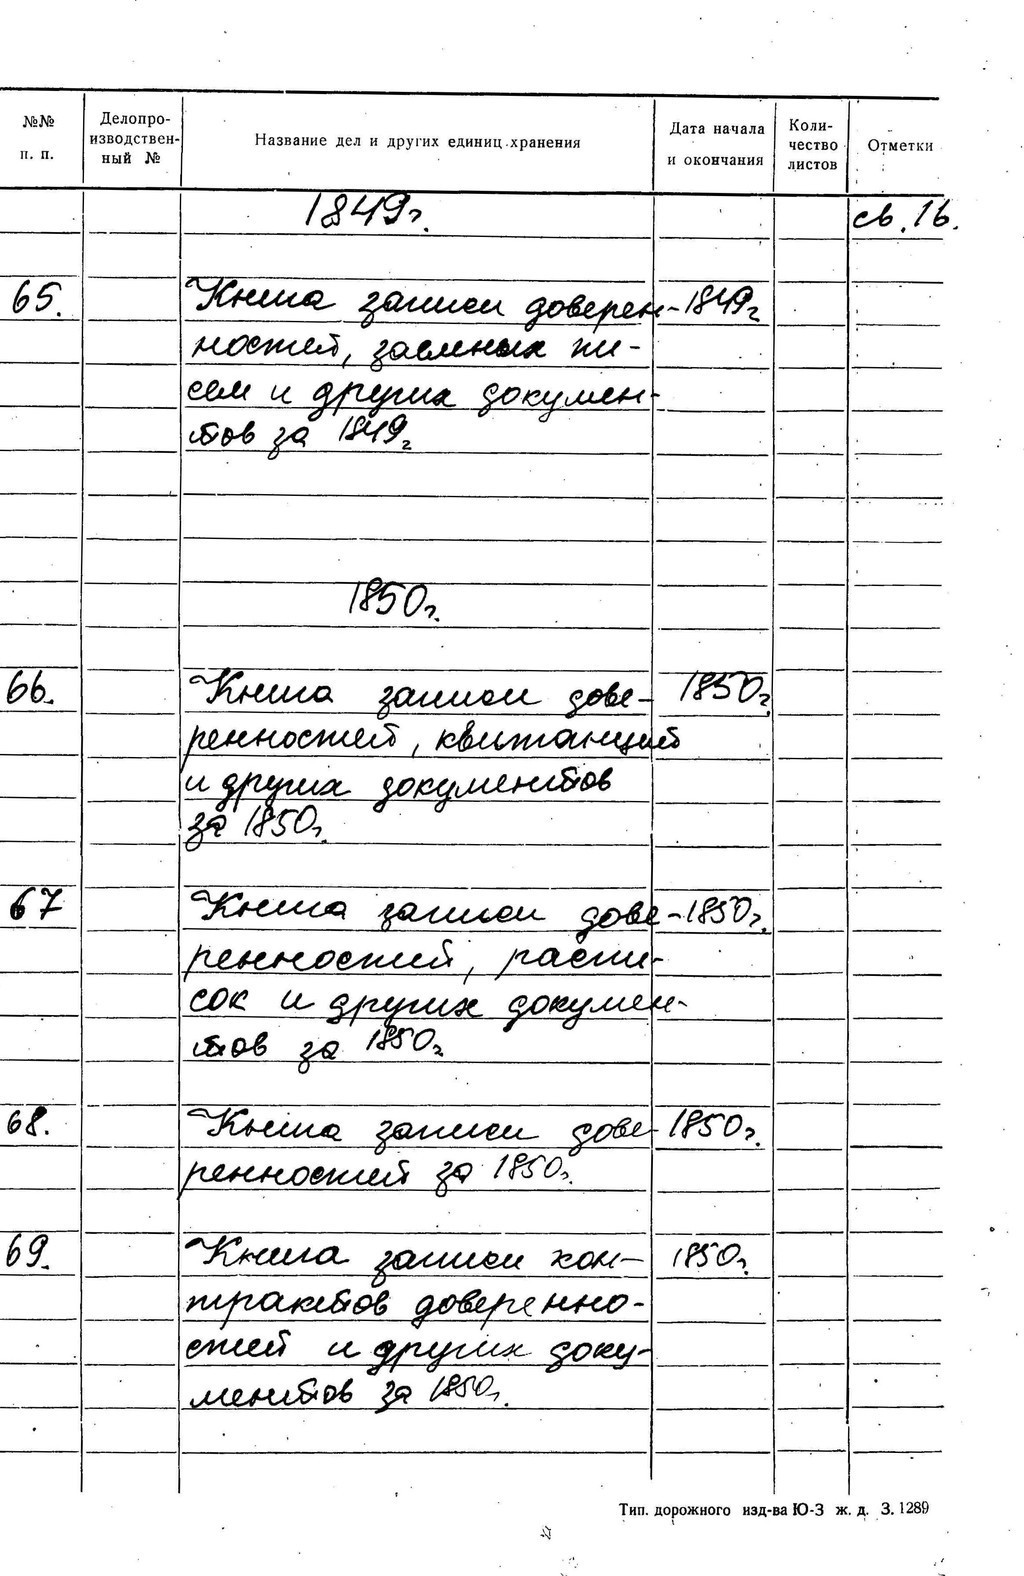 №№ п. п.
Делопро-
изводствен-
ный №
Название дел и других единиц хранения
Дата начала
и окончания
Коли-
чество
листов
Отметки
1849г.
св. 16.
65.
Книга записи доверен-
1849г
ностей, заемных пи-
сем и других докумен-
тов за 1849г
1850г.
66.
Книга записи дове-
1850г
ренностей, квитанций
и других документов
за 1850г.
67
Книга записи дове-
1850г.
ренностей, распи-
сок и других докумен-
тов за 1850г
68.
Книга записи дове-
1850г.
ренностей за 1850г.
69.
Книга записи кон-
1850г.
трактов доверенно-
стей и других доку-
ментов за 1850г.
Тип. дорожного изд-ва Ю-З ж. д. З. 1289